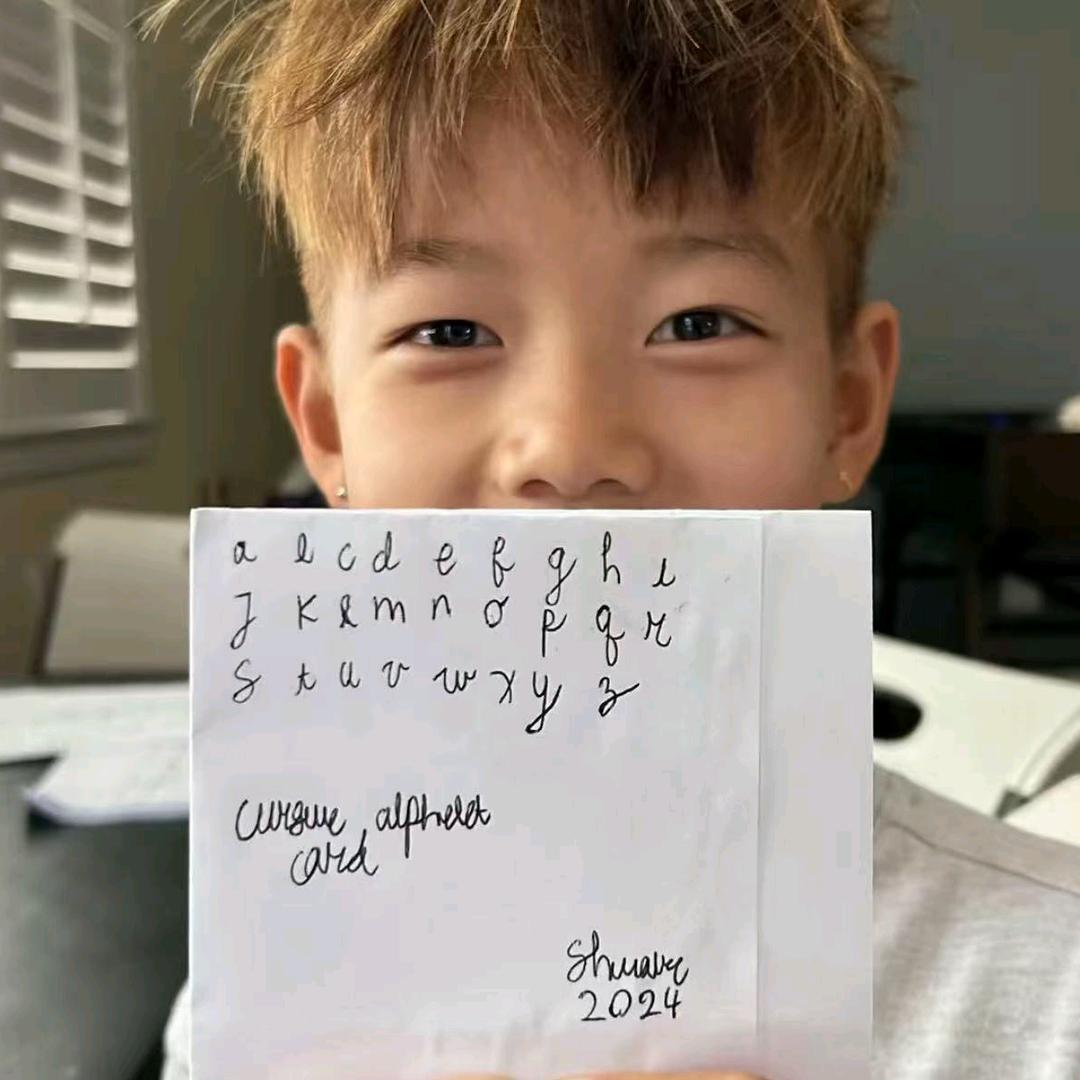 a b c d e f g h i
J K l m n o p q r
S t u v w x y z
cursive alphabet
card
2024